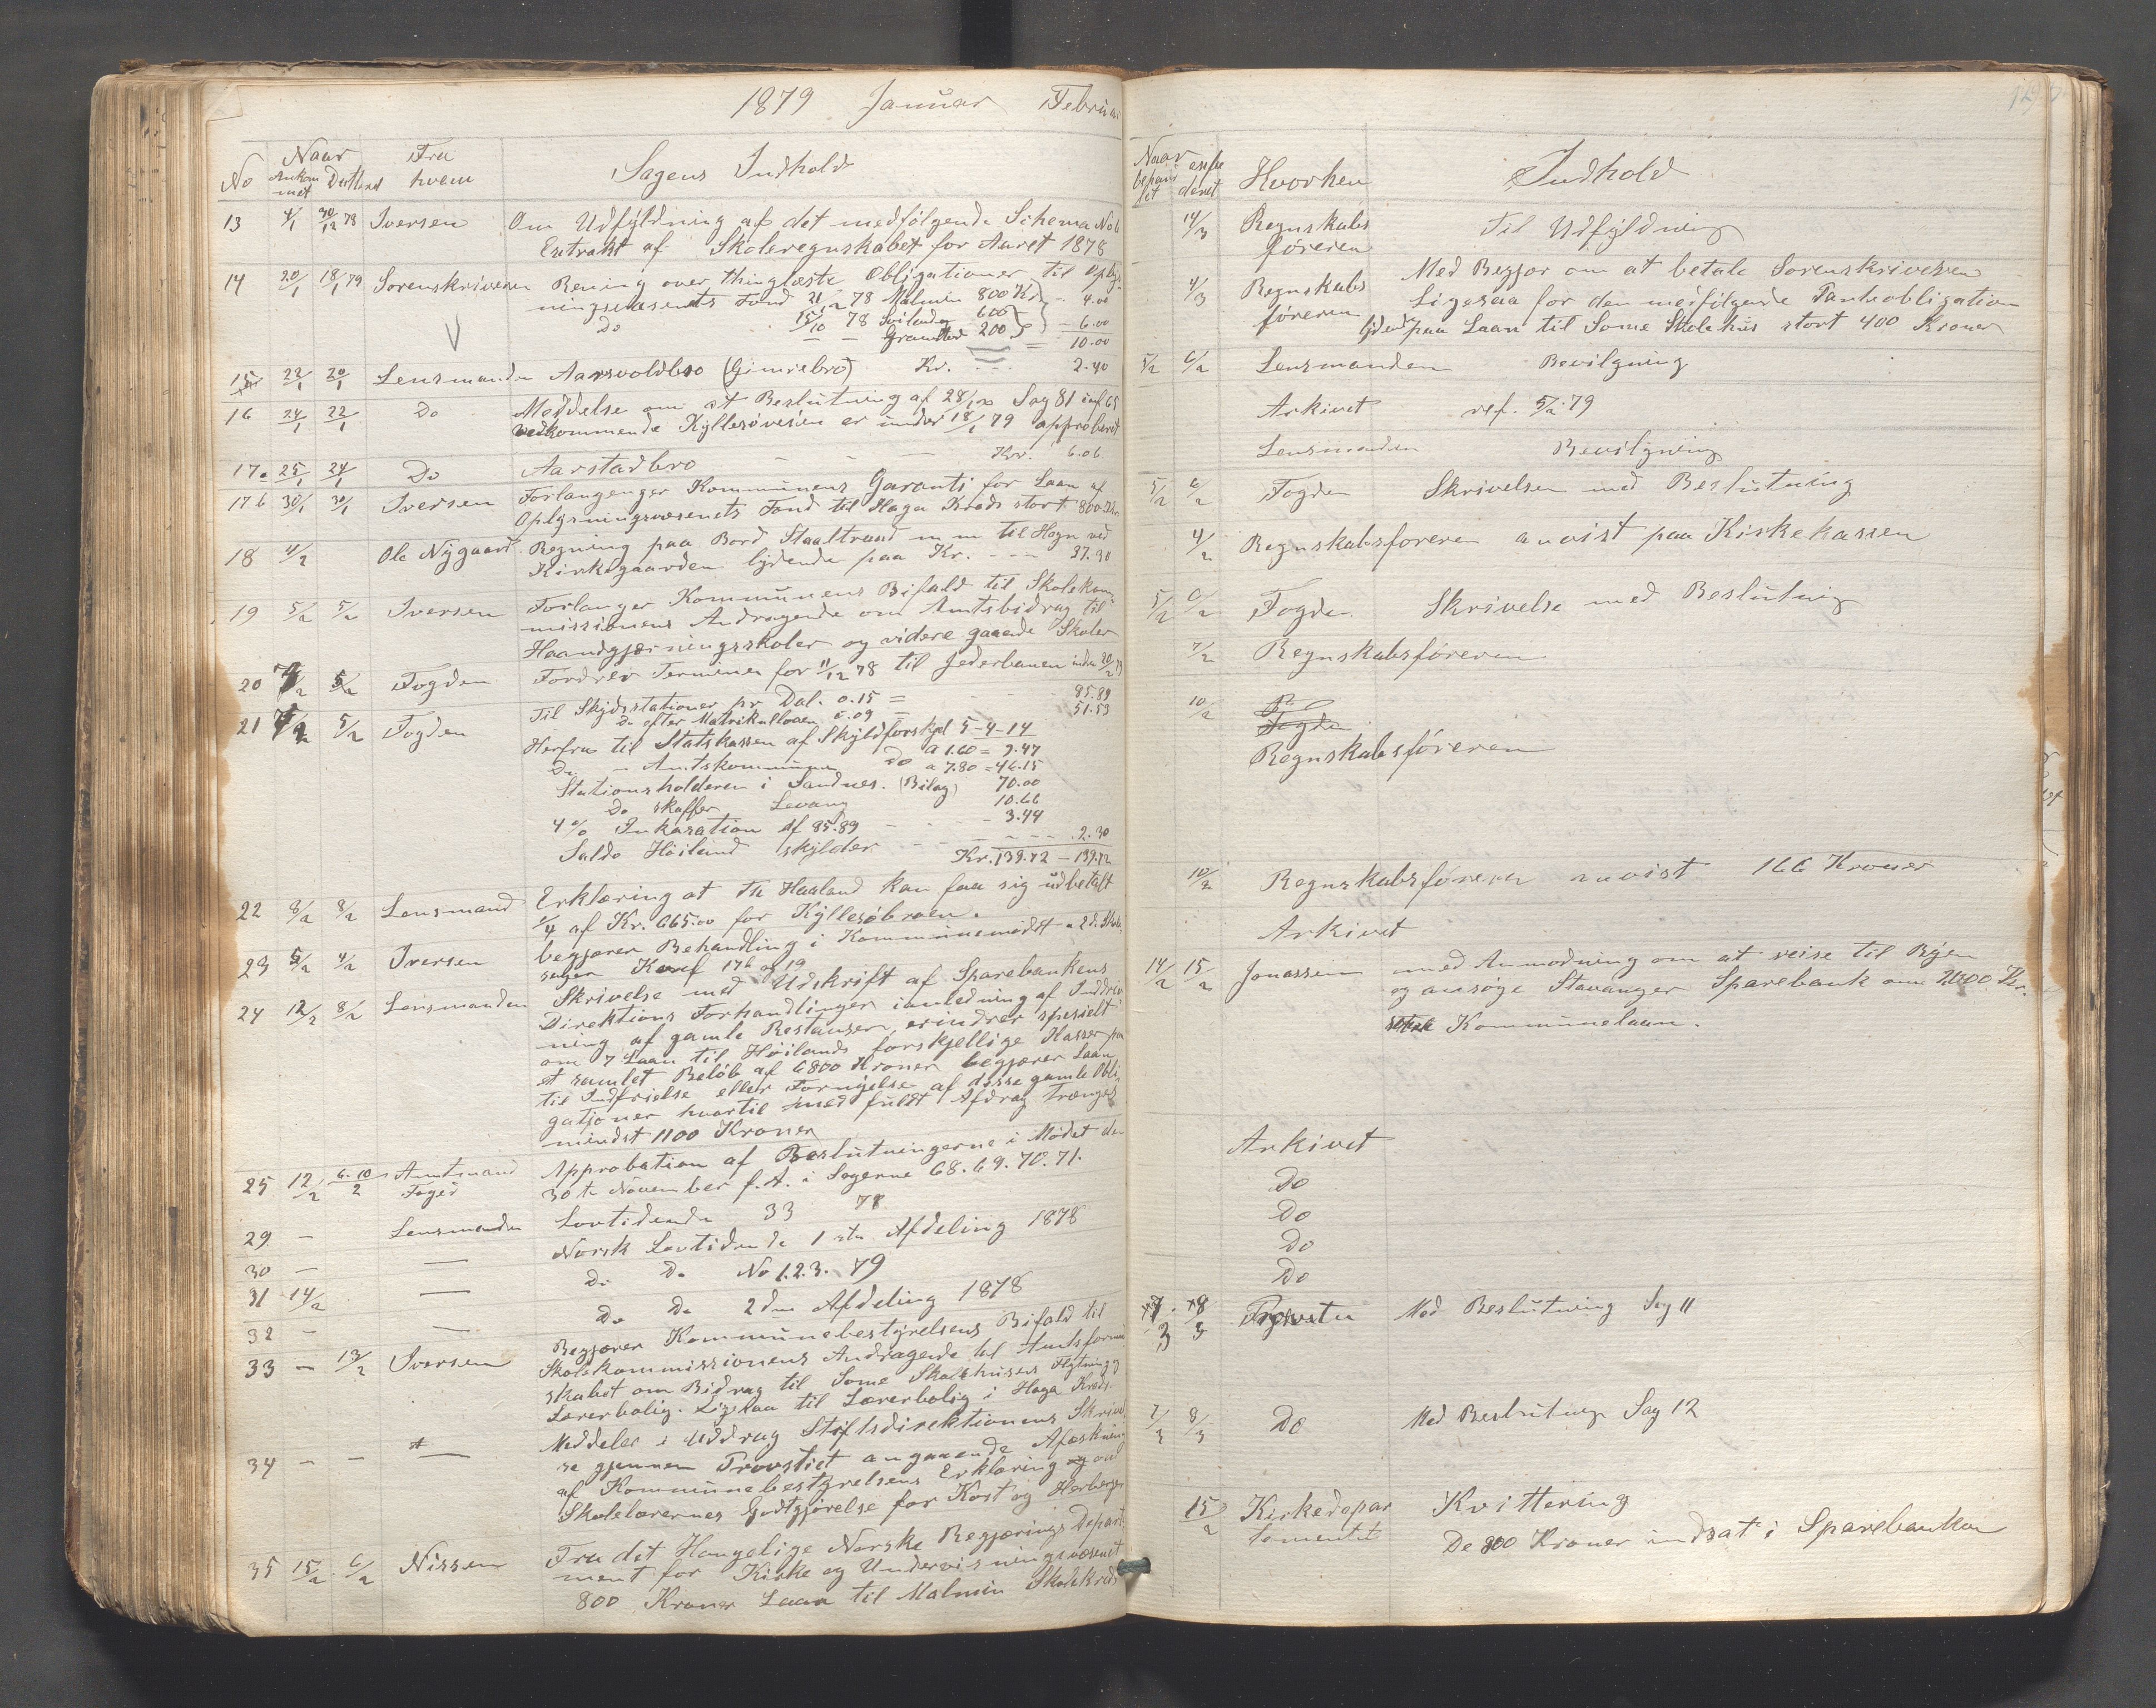 1879 Januar Februar
No Naar Ankommet Dattert Fra hvem Sagens Indhold
13 4/1 30/12 78 Iversen Om Udfyldning af det medfølgende Schema No 6
Extrakt af Skoleregnskabet for Aaret 1878
14 20/1 18/1 79 Sorenskriveren Rening over thinglæste Obligationer til Oplys
ningsvæsenets Fond 21/12 78 Malmin 800 Kr - 4.00
Do 15/10 78 600 - 6.00
— — 200 = 10.00
15 22/1 20/1 Lensmanden Aarsvoldbro (Gimrebro) Kr. 2.40
16 24/1 22/1 Do Meddelse om at Beslutning af Sag 81
vedkommende Kyllesøveien er under 18/1 79 approberet
17a 25/1 24/1 Do Aarstadbro — — — Kr. 6.06
17b 30/1 30/1 Iversen Forlangenger Kommunens Garanti for Laan af
Oplysningsvæsenets Fond til Haga Kreds stort 800 Kr
18 4/2 Ole Nygaard Regning paa Bord Staaltraad m m til Hegn ved
Kirkegaarden lydende paa Kr. - - - 37.30
19 5/2 5/2 Iversen Forlanger Kommunens Bifald til Skolekom
missionens Andragende om Amtsbidrag til
Haandgjerningsskoler og videre gaaende Skoler
20 7/2 5/2 Fogden Fordrer Terminen for 11/12 78 til Jederbanen inden 20/2 79
21 7/2 5/2 Fogden Til Skydsstationer pr Dal. 0.15 = 85.89
Do efter Matrikulloven 0.09 = 51.53
Herfra til Statskassen af Skyldforskjel 5-4-14
Do - Amtskommunen a 1.60 = 9.47
Do a 7.80 = 46.15
Stationsholderen i Sandnes. (Bilag) 70.00
Do skaffer Levang 10.66
4 % Inkasation af 85.89 - - - 3.44
Saldo Høiland skylder - - - 2.30
Kr. 139.72 - 139.72
22 8/2 8/2 Lensmand Erklæring at Th Haaland kan faa sig udbetalt
1/4 af Kr. 665.00 for Kyllesøbroen.
23 5/2 4/2 Iversen begjærer Behandling i Kommunemødet a 2de Skole
sager Konf 17b og 19
24 12/2 8/2 Lensmanden Skrivelse med Udskrift af Sparebankens
Direktions Forhandlinger i anledning af Inddriv
ning af gamle Restanser, erindrer spesielt
om 7 Laan til Høilands forskjellige Kasser paa
et samlet Beløb af 6800 Kroner begjærer Laan
til Indfrielse eller Fornyelse af disse gamle Obli
gationer hvortil med fuldt Afdrag trænges
mindst 1100 Kroner
25 12/2 6.10/2 Amtmand Foged Approbation af Beslutningerne i Mødet den
30te November f.A. i Sagerne 68.69.70.71.
29 — Lensmanden Lovtidende 33 78
30 — — Norsk Lovtidende 1ste Afdeling 1878
31 14/2 — Do Do No 1.2.3. 79
32 — — Do Do 2den Afdeling 1878
33 — 13/2 Iversen Begjærer Kommunebestyrelsens Bifald til
Skolekommissionens Andragende til Amtsformand
skabet om Bidrag til Some Skolehuses Flytning og
Lærerbolig. Ligesaa til Lærerbolig i Haga Kreds.
34 — — — Meddeler i Uddrag Stiftsdirektionens Skrivel
se gjennem Provstiet angaaende Afæskning
af Kommunebestyrelsens Erklæring om
Skolelærernes Godtgjørelse for Kost og Herberge
35 15/2 6/2 Nissen Fra det Kongelige Norske Regjærings Depart
ment for Kirke og Undervisningsvæsenet
800 Kroner Laan til Malmin Skolekreds
Naar Hvorhen Indhold
14/3 Regnskabs føreren Til Udfyldning
4/3 Regnskabs føreren Med Begjær om at betale Sorenskriveren
Ligesaa for den medfølgende Panteobligation
lydende paa Laan til Some Skolehus stort 400 Kroner
5/2 6/2 Lensmanden Bevilgning
Arkivet ref. 5/2 79
Lensmanden Bevilgning
5/2 6/2 Fogden Skrivelsen med Beslutning
4/2 Regnskabsføreren anvist paa Kirkekassen
5/2 6/2 Fogden Skrivelse med Beslutning
7/2 Regnskabsføreren
10/2 Fogden
Regnskabsføreren
10/2 Regnskabsføreren anvist 166 Kroner
Arkivet
14/2 15/2 Jonassen med Anmodning om at reise til Byen
og ansøge Stavanger Sparebank om Kr.
Kommunelaan.
Arkivet
Do
Do
Do
Do
7/3 8/3 Provsten Med Beslutning Sag 11
7/3 8/3 Do Med Beslutning Sag 12
15/2 Kirkedepar tementet Kvittering
De 800 Kroner indsat i Sparebanken